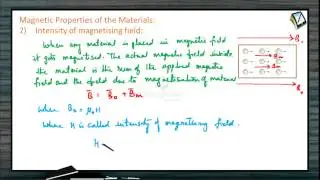 Magnetic Properties of the Materials:
2) Intensity of magnetising field:
When any material is placed in magnetic field
it gets magnetised. The actual magnetic field inside
the material is the sum of the applied magnetic
field and the field due to magnetisation of material
B̄ = B̄₀ + B̄ₘ
where B₀ = μ₀H
Where H is called intensity of magnetising field.
H
B₀